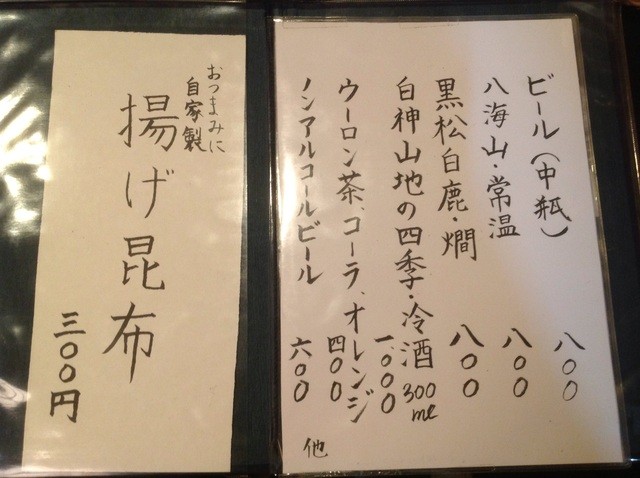 ビール(中瓶) 八〇〇
八海山・常温 八〇〇
黒松白鹿・燗 八〇〇
白神山地の四季・冷酒 300ml 一、〇〇〇
ウーロン茶、コーラ、オレンジ 四〇〇
ノンアルコールビール 六〇〇
他
おつまみに
自家製
揚げ昆布
三〇〇円